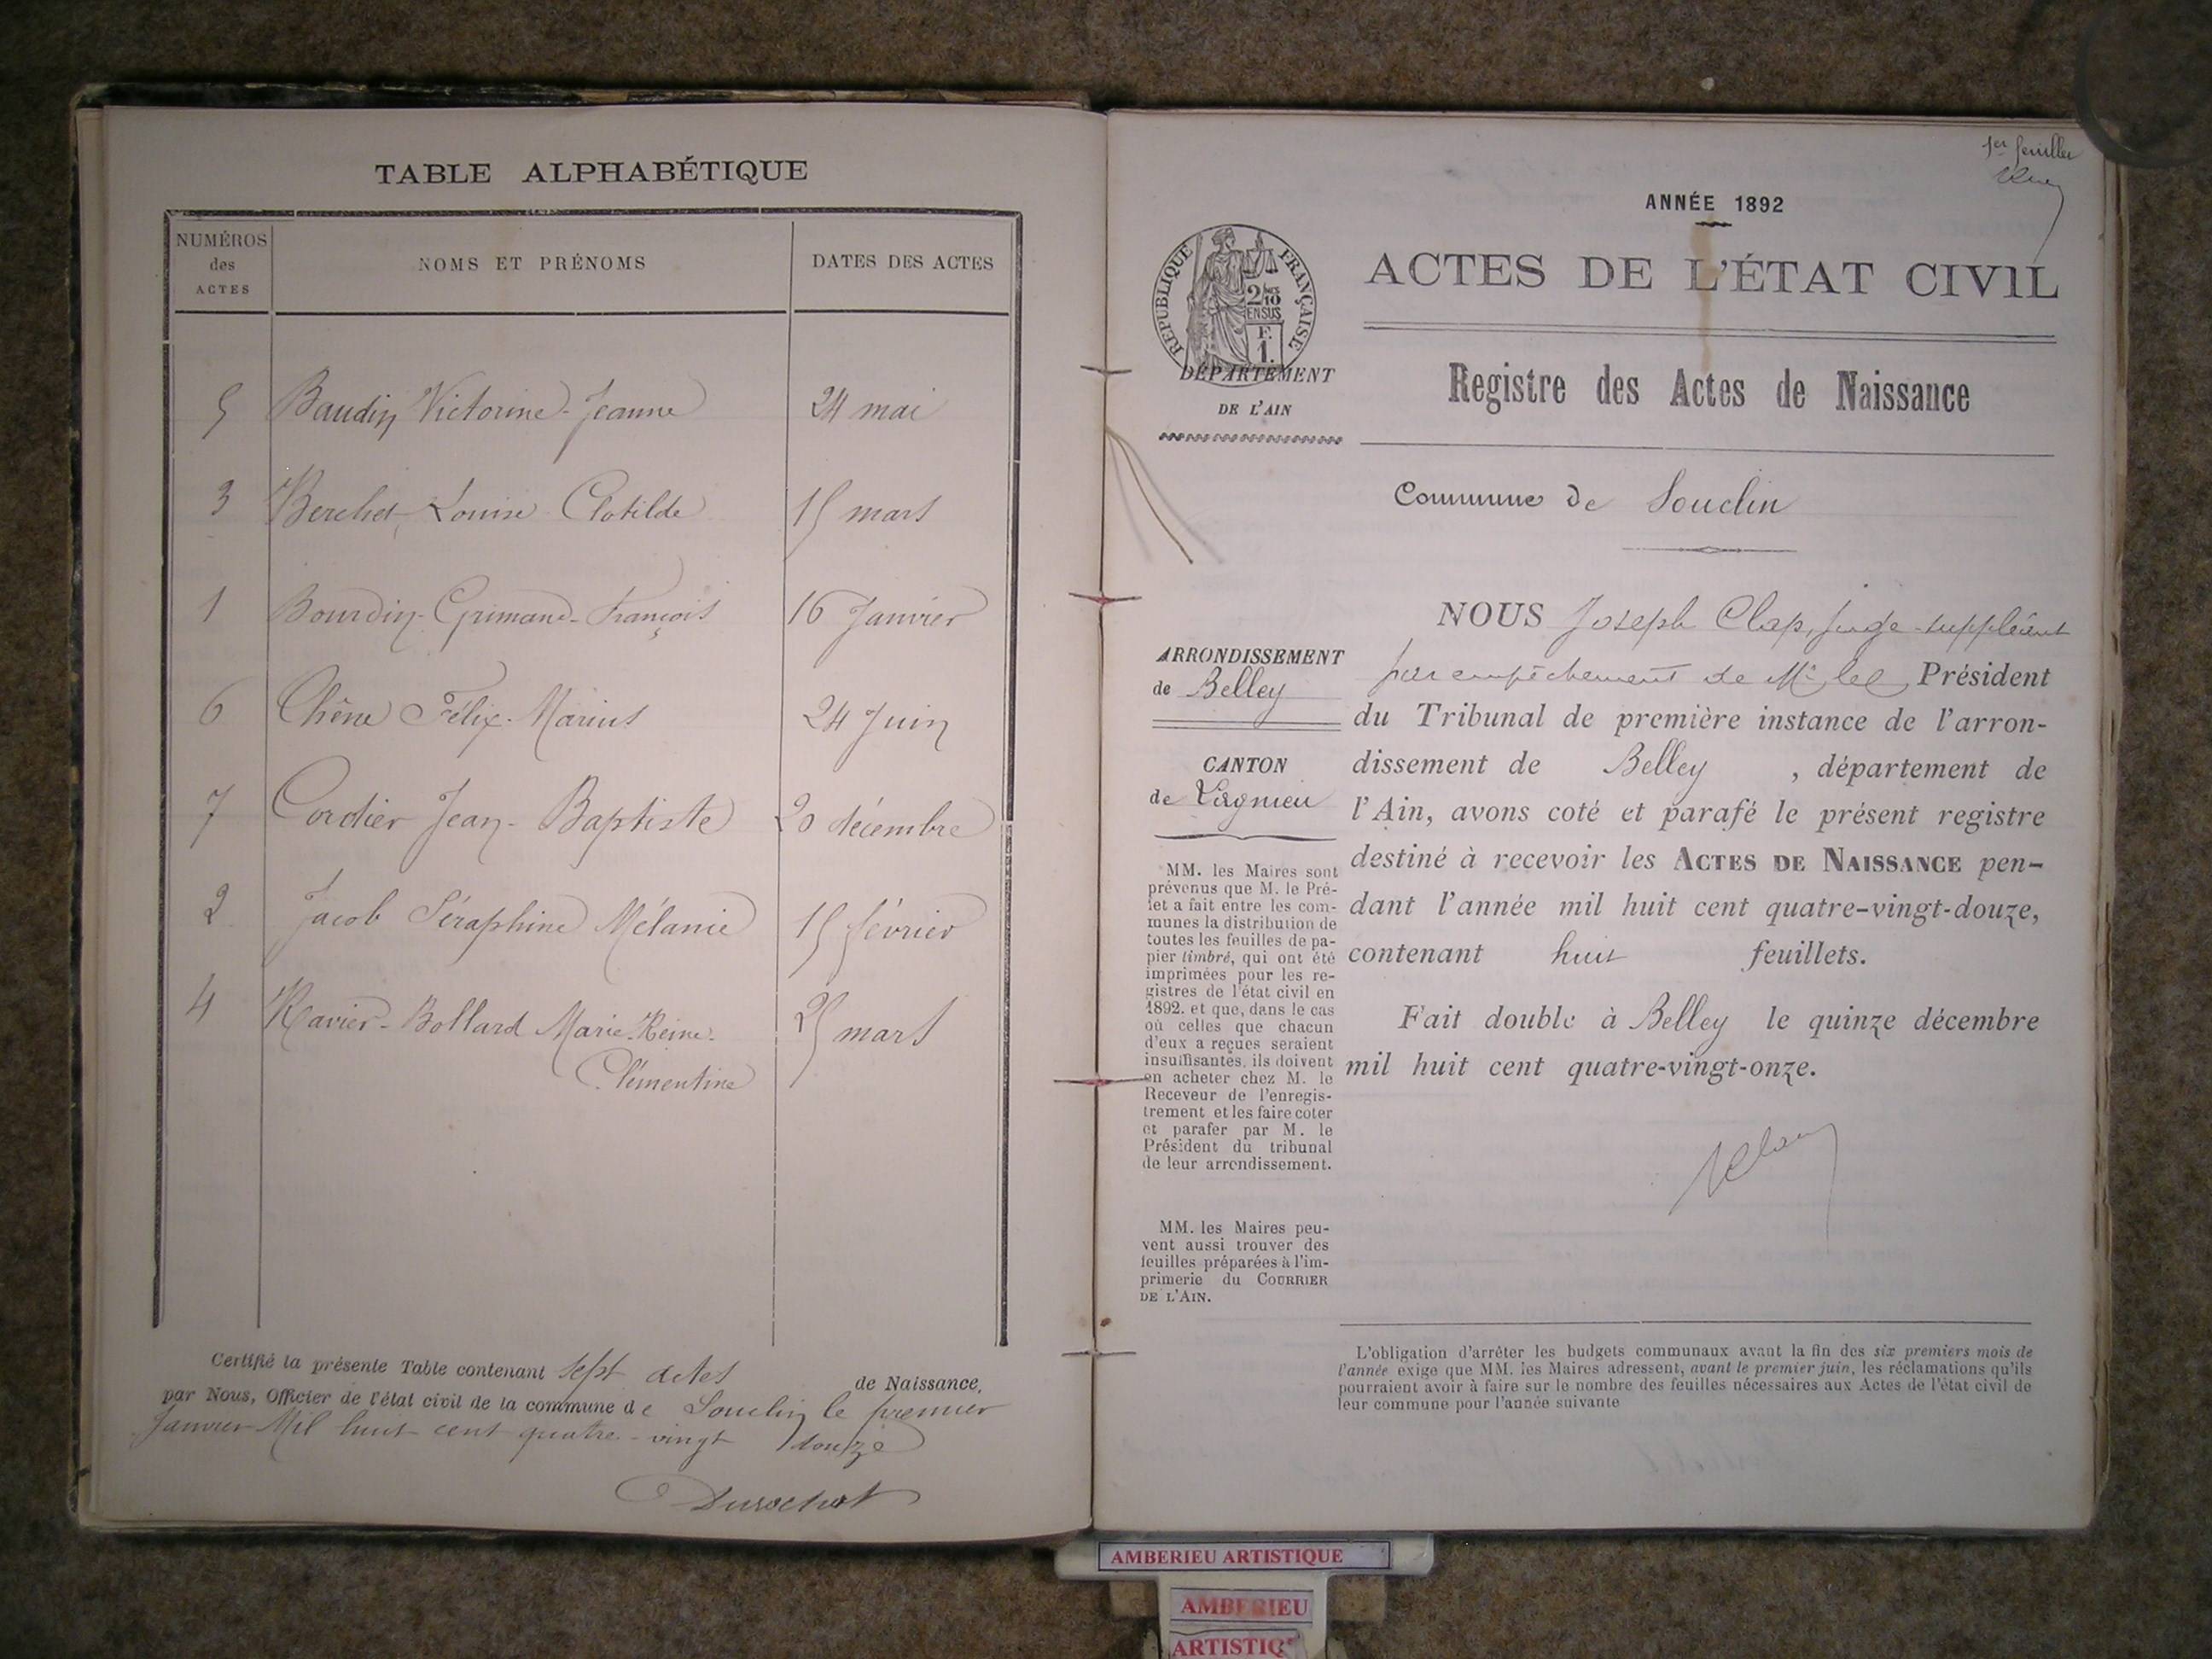 TABLE ALPHABÉTIQUE
NUMÉROS
des
ACTES
NOMS ET PRÉNOMS
DATES DES ACTES
5 Baudin Victorine-Jeanne 24 mai
3 Berchet Louise Clotilde 15 mars
1 Bourdin-Grimand-François 16 Janvier
6 Chêne Félix-Marius 24 Juin
7 Cordier Jean-Baptiste 20 décembre
2 Jacob Séraphine Mélanie 15 février
4 Ravier-Bollard Marie-Reine- 25 mars
Clémentine
Certifié la présente Table contenant sept actes de Naissance,
par Nous, Officier de l'état civil de la commune de Souclin le premier
Janvier Mil huit cent quatre-vingt douze
Durochat
1er feuillet
ANNÉE 1892
RÉPUBLIQUE FRANÇAISE
2/10
EN SUS
F.
1.
ACTES DE L'ÉTAT CIVIL
DÉPARTEMENT
DE L'AIN
Registre des Actes de Naissance
Commune de Souclin
ARRONDISSEMENT
de Belley
CANTON
de Lagnieu
MM. les Maires sont
prévenus que M. le Pré-
fet a fait entre les com-
munes la distribution de
toutes les feuilles de pa-
pier timbré, qui ont été
imprimées pour les re-
gistres de l'état civil en
1892. et que, dans le cas
où celles que chacun
d'eux a reçues seraient
insuffisantes, ils doivent
en acheter chez M. le
Receveur de l'enregis-
trement et les faire coter
et parafer par M. le
Président du tribunal
de leur arrondissement.
MM. les Maires peu-
vent aussi trouver des
feuilles préparées à l'im-
primerie du COURRIER
DE L'AIN.
NOUS Joseph Clap, juge-suppléant
par empêchement de Mr le Président
du Tribunal de première instance de l'arron-
dissement de Belley, département de
l'Ain, avons coté et parafé le présent registre
destiné à recevoir les ACTES DE NAISSANCE pen-
dant l'année mil huit cent quatre-vingt-douze,
contenant huit feuillets.
Fait double à Belley le quinze décembre
mil huit cent quatre-vingt-onze.
L'obligation d'arrêter les budgets communaux avant la fin des six premiers mois de
l'année exige que MM. les Maires adressent, avant le premier juin, les réclamations qu'ils
pourraient avoir à faire sur le nombre des feuilles nécessaires aux Actes de l'état civil de
leur commune pour l'année suivante
AMBERIEU ARTISTIQUE
AMBERIEU
ARTISTIQ